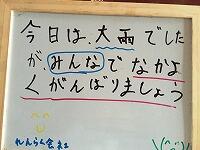 今日は、大雨でした
が みんなで なかよ
く がんばりましょう
れんらく会社
\(^^)/